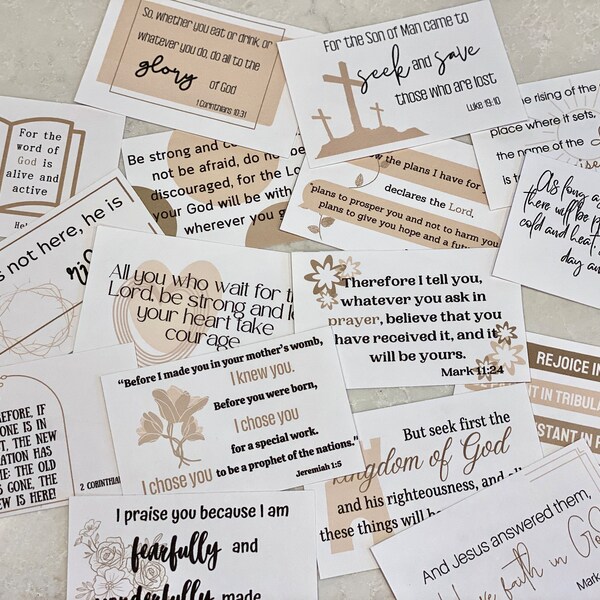 So, whether you eat or drink, or
whatever you do, do all to the
glory
of God
1 Corinthians 10:31
For the Son of Man came to
seek and save
those who are lost
Luke 19:10
For the
word of
God is
alive and
active
Be strong and
not be afraid, do
discouraged, for the Lo
your God will be with
wherever you g
ow the plans I have for
declares the Lord,
plans to prosper you and not to harm you
plans to give you hope and a futu
he rising of the
place where it sets,
the name of the
As long a
there will be p
cold and heat,
day an
s not here, he is
All you who wait for t
Lord, be strong and le
your heart take
courage
Therefore I tell you,
whatever you ask in
prayer, believe that you
have received it, and it
will be yours.
Mark 11:24
REJOICE IN
T IN TRIBULA
STANT IN P
"Before I made you in your mother's womb,
I knew you.
Before you were born,
I chose you
for a special work.
I chose you to be a prophet of the nations."
Jeremiah 1:5
EFORE, IF
ONE IS IN
T, THE NEW
EATION HAS
ME: THE OLD
S GONE, THE
EW IS HERE!
2 CORINTHIA
But seek first the
kingdom of God
and his righteousness, and
these things will be
I praise you because I am
fearfully and
wonderfully made
And Jesus answered them,
ve faith in Go
Mark